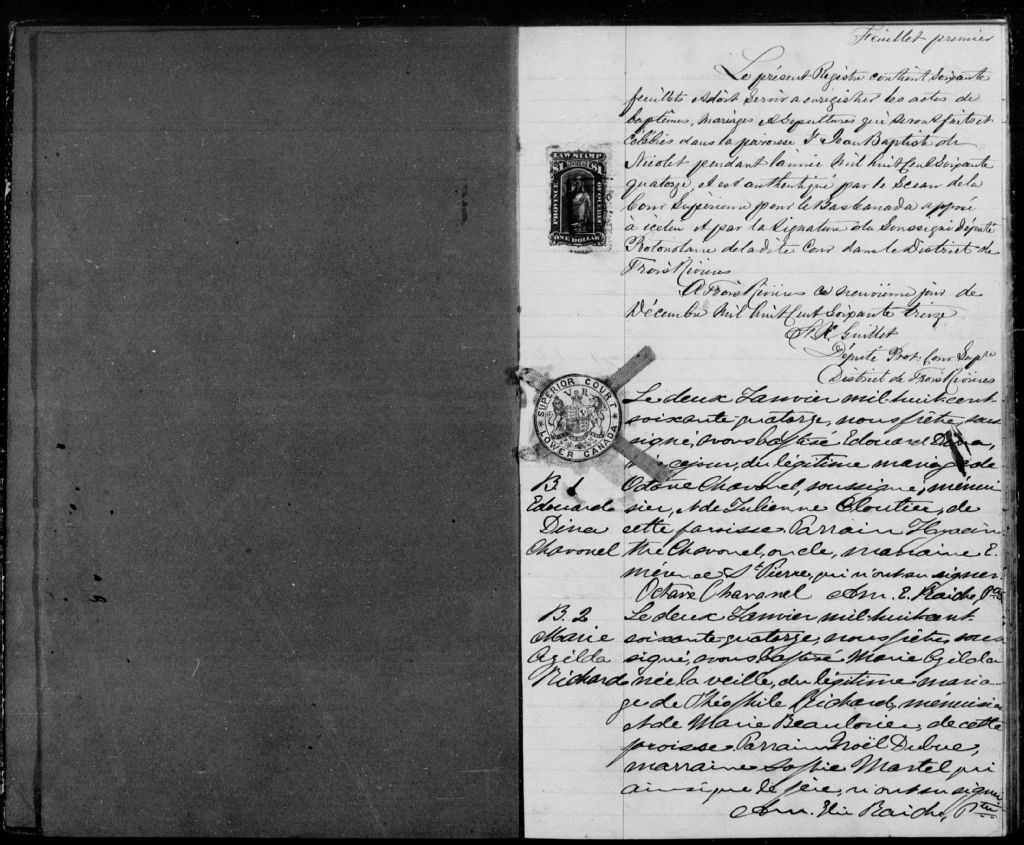 Feuillet premier
Le présent Régistre contient Soixante
feuillets & doit Servir a enrégistrer les actes de
baptêmes, Mariages & Sépultures qui seront faits et
Célébrés dans la paroisse St Jean Baptiste de
Nicolet pendant l'année Mil huit Cent Soixante
quatorze, et est authentiqué par le Sceau de la
Cour Supérieure pour le Bas Canada apposé
à icelui et par la Signature du Soussigné Député
Protonotaire de la dite Cour dans le District de
Trois Rivières
A Trois Rivières ce neuvième jour de
Décembre Mil huit Cent Soixante treize
Guillet
Député Prot. Cour Supre
District de Trois Rivières
LAW STAMP
$1 $1
PROVINCE OF QUEBEC
ONE DOLLAR
SUPERIOR COURT
V R
LOWER CANADA
B. 1
Edouard
Dina
Chavonel
Le deux Janvier mil-huit-cent-
soixante-quatorze, nous prêtre, sous
signé, avons baptisé Edouard Dina,
né ce jour, du légitime mariage de
Octave Chavonel, soussigné, ménui
sier, & de Julienne Cloutier, de
cette paroisse. Parrain Hyacin
the Chavonel, oncle, marraine E.
mérence St Pierre, qui n'ont su signer.
Octave Chavanel Am. E. Raiche, Ptre
B. 2
Marie
Azilda
Richard
Le deux Janvier mil-huit-cent
soixante-quatorze, nous prêtre, sous
signé, avons baptisé Marie Azilda
née la veille, du légitime maria-
ge de Théophile Richard, ménuisier
& de Marie Beaulorier, de cette
proisse. Parrain Noël Dubue,
marraine Sophie Martel qui
ainsi que le père, n'ont su signer
Am. Elie Raiche, Ptre